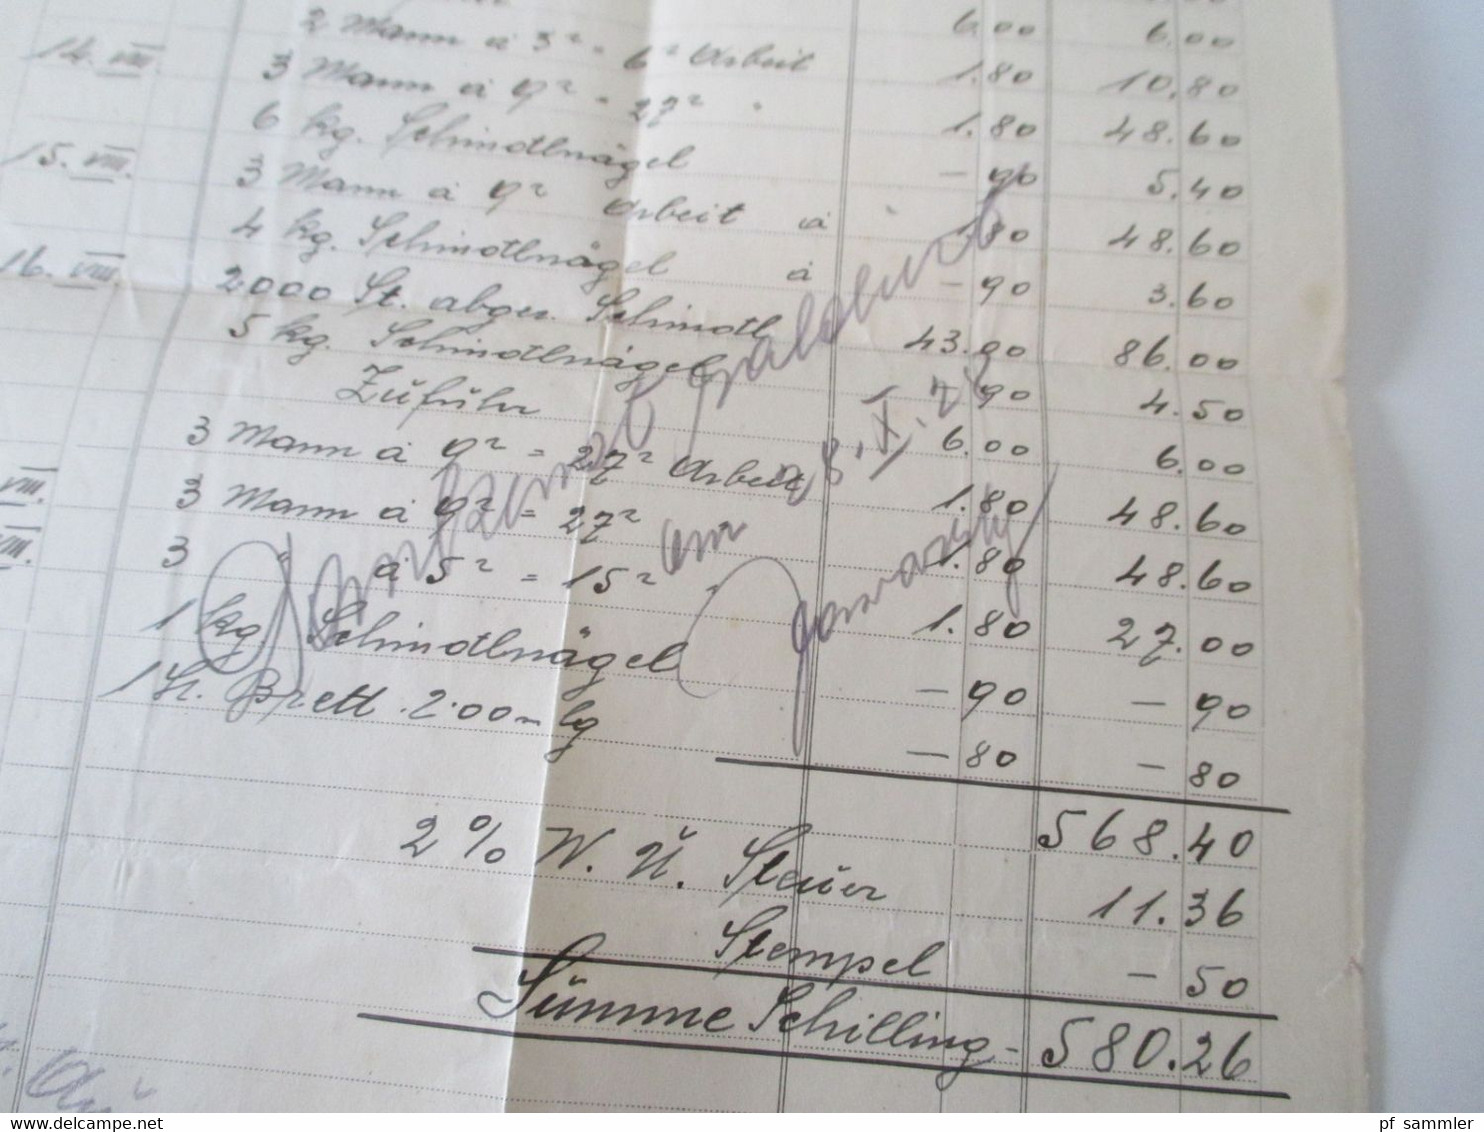 2 Mann à 3² = 6² Arbeit 6.00 6.00
14. VIII. 3 Mann à 9² = 27² " 1.80 10.80
6 kg. Schindlnägel 1.80 48.60
15. VIII. 3 Mann à 9² Arbeit à -.90 5.40
4 kg. Schindlnägel à 1.80 48.60
16. VIII. 2000 St. abger. Schindl -.90 3.60
5 kg. Schindlnägel 43.00 86.00
Zufuhr -.90 4.50
3 Mann à 9² = 27² Arbeit 6.00 6.00
VIII. 3 Mann à 9² = 27² 1.80 48.60
VIII. 3 " à 5² = 15² 1.80 48.60
1 kg. Schindlnägel 1.80 27.00
1 St. Brett 2.00 m lg - 90 - 90
- 80 - 80
568.40
2 % W. U. Steuer 11.36
Stempel - 50
Summe Schilling - 580.26
am 28. X. 28
pf_sammler